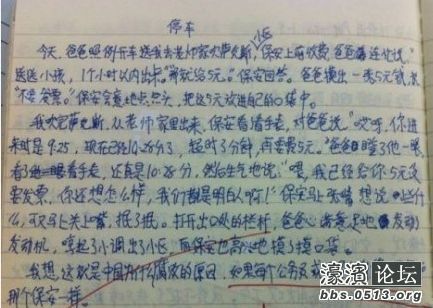 停车
小区
今天，爸爸照例开车送我去老师家吹萨克斯，保安上前收费，爸爸连忙说：“
送送小孩，1个小时以内出来。”“那就给5元。”保安回答。爸爸摸出一张5元钱，说
“不要发票。”保安会意地点点头，把这5元放进自己的口袋中。
我吹完萨克斯，从老师家里出来，保安看看手表，对爸爸说：“哎呀，你进
来时是9:25，现在已经10:28分了，超时3分钟，再交5元。”爸爸瞪了他一眼，
看了他一眼看手表，还真是10:28分，然后生气地说：“喂，我已经给你5元没
要发票，你还想怎么样，我们都是明白人啊！”保安马上张嘴想说些什
么，可又马上关上嘴，抿了抿。打开出口处的栏杆，爸爸心满意足地发动
发动机，哼起了小调出了小区，而保安也高兴地摸了摸口袋。
我想，这就是中国为什么腐败的原因，如果每个公务员
那个保安一样。
濠滨论坛
bbs.0513.org